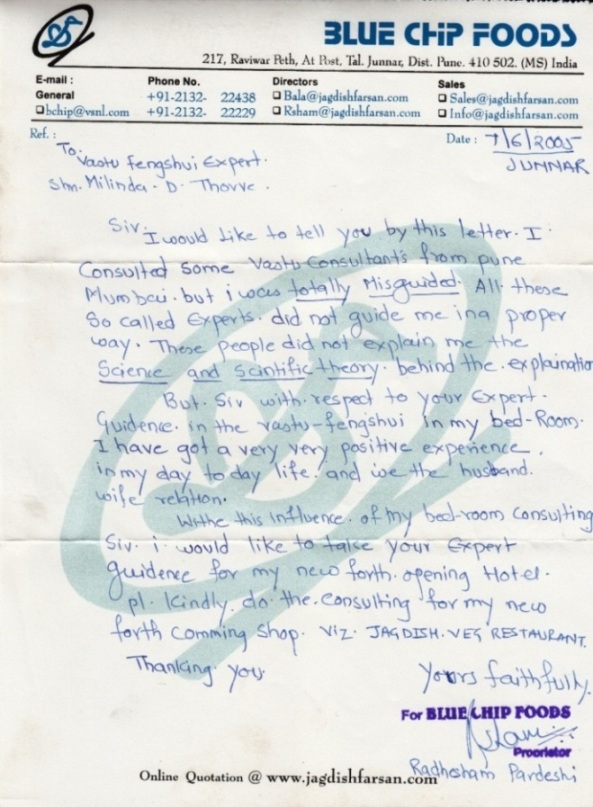 BLUE CHIP FOODS
217, Raviwar Peth, At Post, Tal. Junnar, Dist. Pune. 410 502. (MS) India
E-mail : Phone No. Directors Sales
General +91-2132- 22438 Bala@jagdishfarsan.com Sales@jagdishfarsan.com
bchip@vsnl.com +91-2132- 22229 Rsham@jagdishfarsan.com Info@jagdishfarsan.com
Ref. : Date : 7/6/2005
JUNNAR
To,
Vastu fengshui Expert.
Shri. Milinda. D. Thorve.
Sir. I would like to tell you by this letter. I
Consulted some Vastu Consultants from pune
Mumbai. but i was totally Misguided. All these
So called Experts. did not guide me in a proper
way. These people did not explain me the
Science and Scintific theory. behind the. explaination
But. Sir with. respect to your Expert.
Guidence. in the vastu-fengshui in my bed-Room.
I have got a very very positive experience.
in my day to day life. and we the husband.
wife relation.
Withe this influence. of my bed-room consulting
Sir. i would like to take your Expert
guidence for my new forth. opening Hotel.
pl. kindly. do. the. consulting for my new
forth comming shop. viz. JAGDISH. VEG RESTAURANT.
Thanking you
Yours faithfully,
For BLUE CHIP FOODS
Proprietor
Radhesham Pardeshi
Online Quotation @ www.jagdishfarsan.com